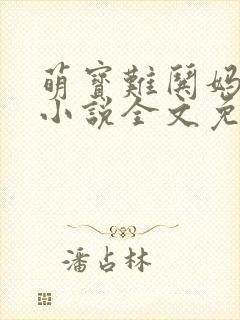 萌寶難鬨媽
小說全文免
潘占林